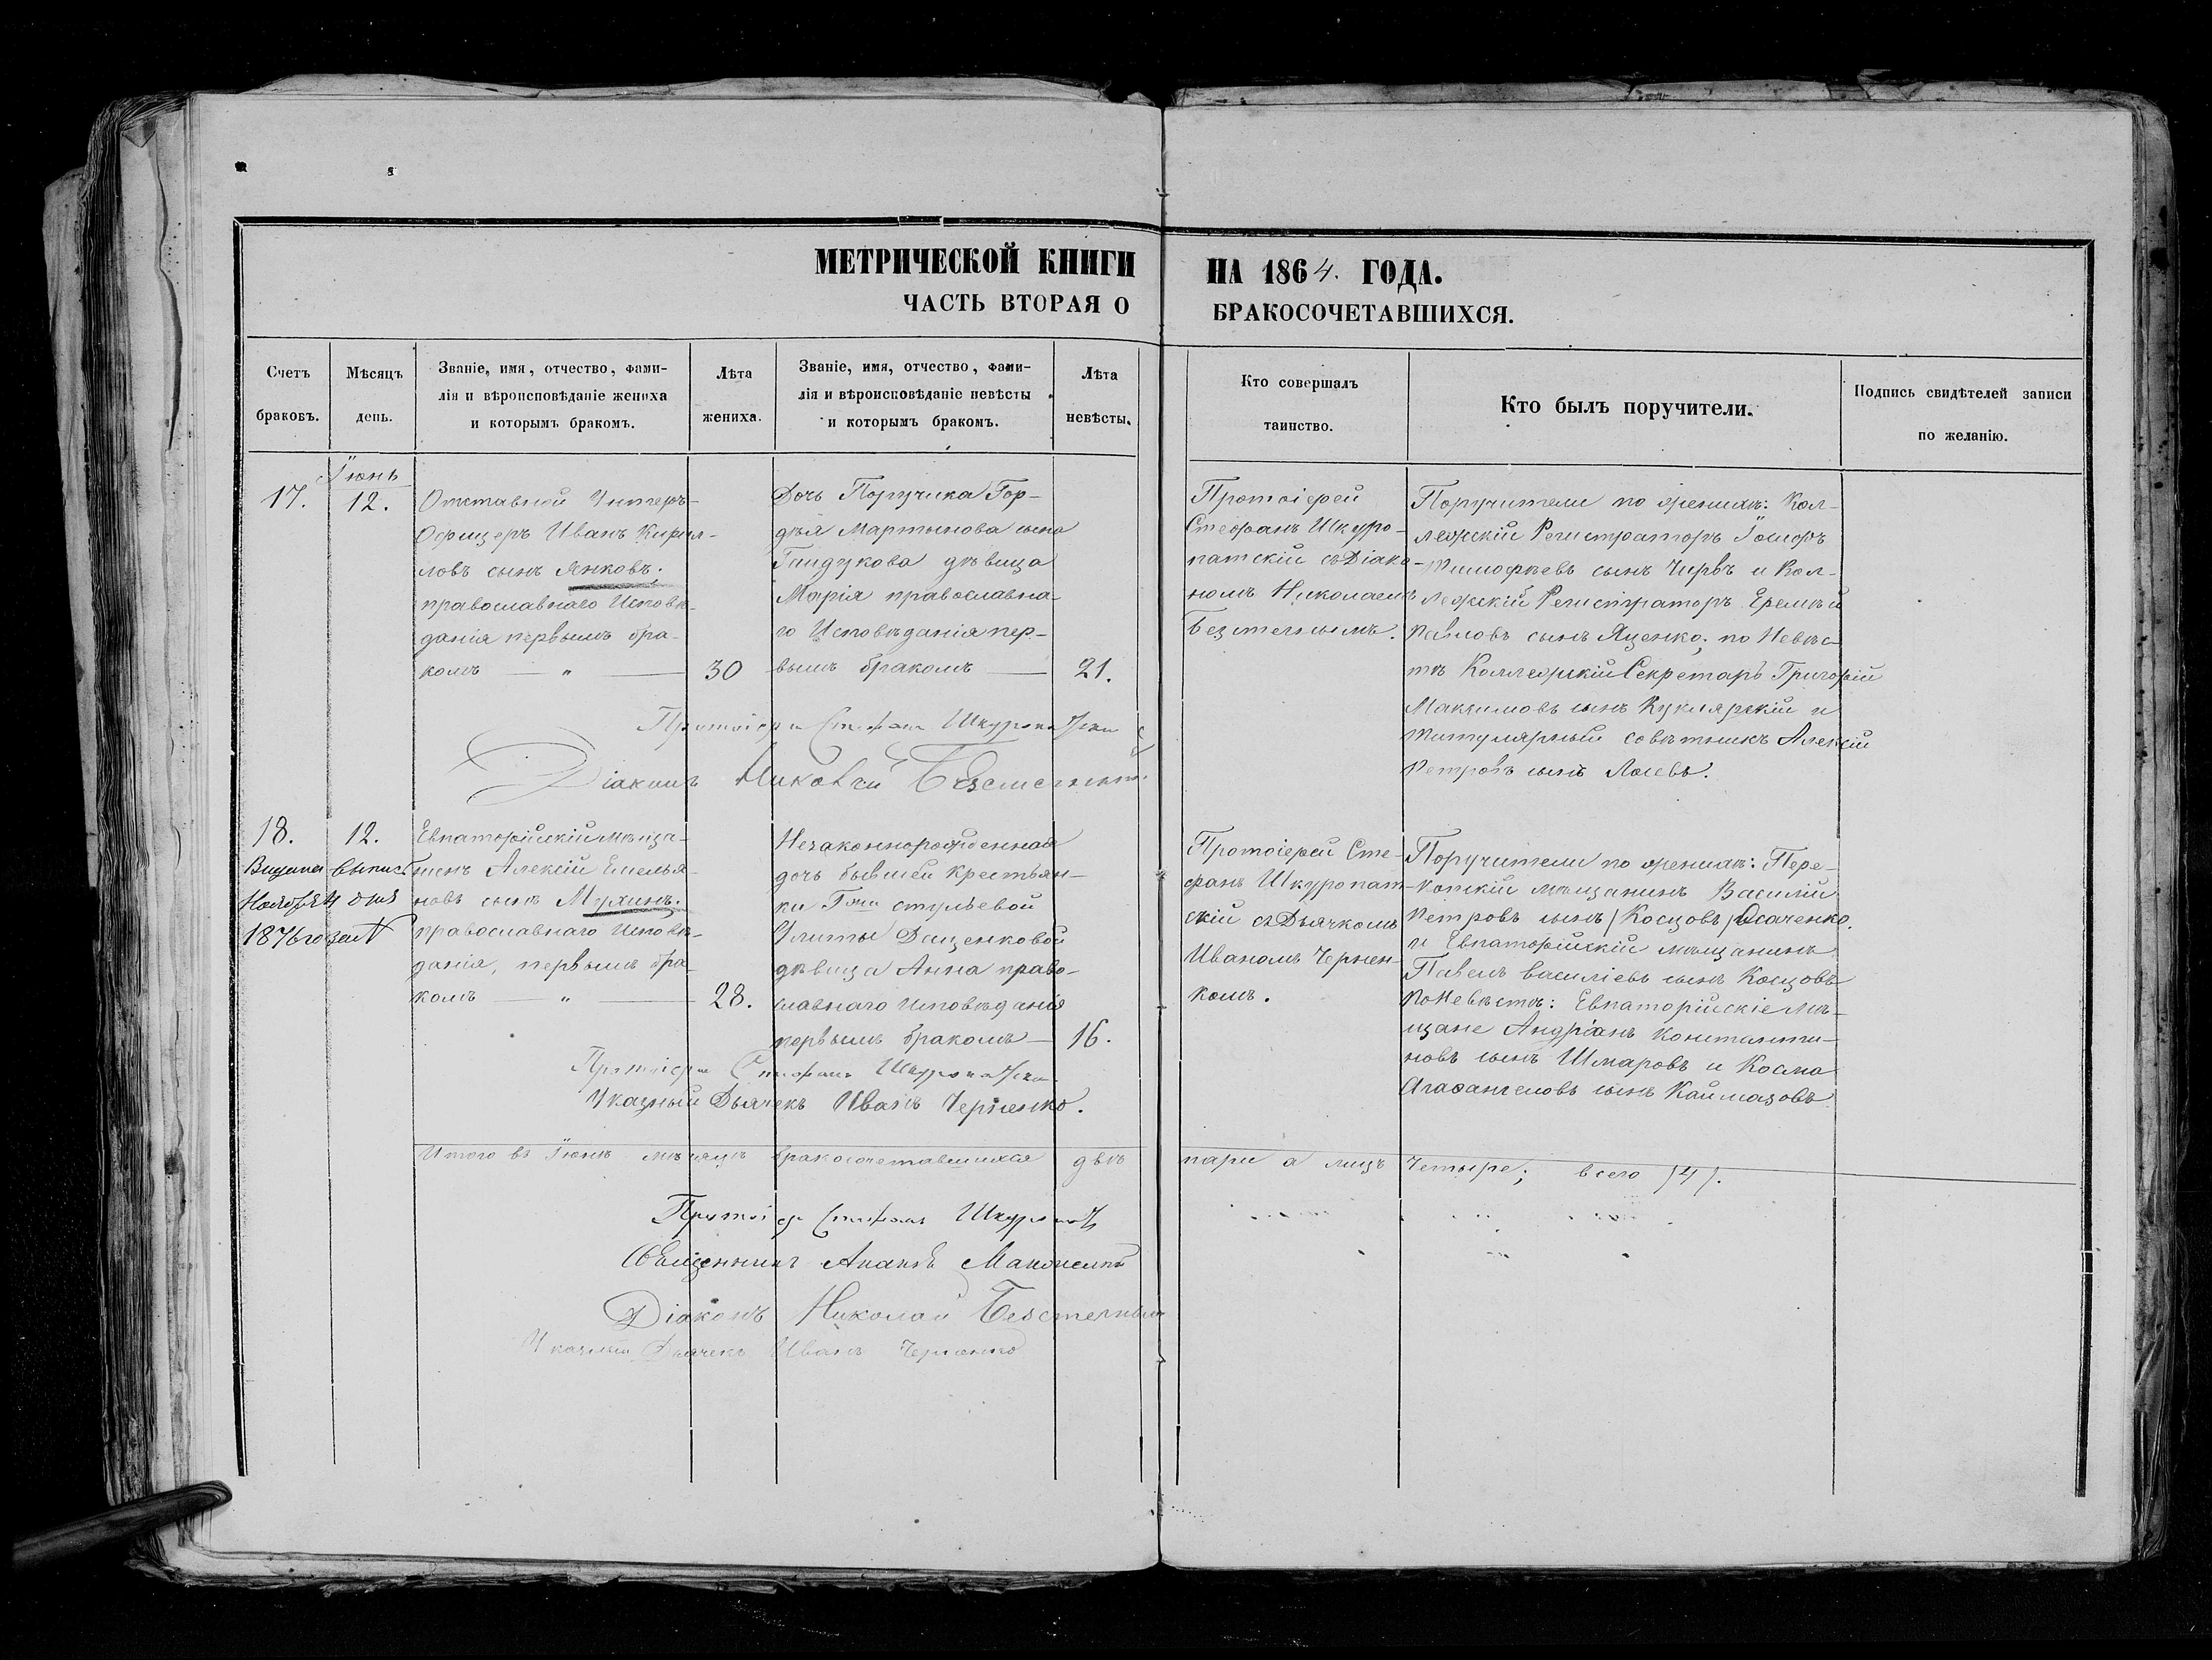 МЕТРИЧЕСКОЙ КНИГИ НА 1864. ГОДА.
ЧАСТЬ ВТОРАЯ О БРАКОСОЧЕТАВШИХСЯ.
Счетъ
браковъ.
Мѣсяцъ
день.
Званіе, имя, отчество, фами-
лія и вѣроисповѣданіе жениха
и которымъ бракомъ.
Лѣта
жениха.
Званіе, имя, отчество, фами-
лія и вѣроисповѣданіе невѣсты
и которымъ бракомъ.
Лѣта
невѣсты.
Кто совершалъ
таинство.
Кто былъ поручители.
Подпись свидѣтелей записи
по желанію.
Іюнь
17.
12.
Отставной Унтеръ-
Офицеръ Иванъ Кирил-
ловъ сынъ Янковъ.
православнаго Исповѣ-
данія первымъ бра-
комъ — „ —
30
Дочь Поручика Гор-
дѣя Мартынова сына
Гайдукова дѣвица
Марія православна-
го Исповѣданія пер-
вымъ бракомъ —
21.
Протоіерей
Стефанъ Шкуро-
патскій съ Діако-
номъ Николаемъ
Безтельнымъ.
Поручители по женихѣ: Кол-
лежскій Регистраторъ Іосифъ
Тимофѣевъ сынъ Чирвъ и Кол-
лежскій Регистраторъ Еремѣй
Павловъ сынъ Яценко; по Невѣс-
тѣ Коллежскій Секретарь Григорій
Максимовъ сынъ и
Титулярный совѣтникъ Алексій
Петровъ сынъ Лосевъ.
Протоіерей Стефанъ
Діаконъ Николай
18.
12.
Видана выпись
Ноября 4 дня
1876 года
Евпаторійскій мѣща-
нинъ Алексій Емелья-
новъ сынъ Мухинъ.
православнаго Исповѣ-
данія, первымъ бра-
комъ — „ —
28.
Незаконнорожденная
дочь бывшей Крестьян-
ки Гжи стульевой
Улиты Даценковой
дѣвица Анна право-
славнаго Исповѣданія
первымъ бракомъ —
16.
Протоіерей Сте-
фанъ Шкуропат-
скій съ Дьячкомъ
Иваномъ Чернен-
комъ.
Поручители по женихѣ: Пере-
копскій мѣщанинъ Василій
Петровъ сынъ /Косцовъ/ Осаченко.
и Евпаторійскій мѣщанинъ
Павелъ Василіевъ сынъ Косцовъ
по Невѣстѣ: Евпаторійскіе мѣ-
щане Андріанъ Константи-
новъ сынъ Шмаровъ и Косма
Агафангеловъ сынъ Каймазовъ
Протоіерей Стефанъ
Указный Дьячекъ Иванъ Черненко.
Итого въ Іюнѣ мѣсяцѣ бракосочетавшихся двѣ пари а лицъ четыре; всего /4/.
Протоіер Стефанъ
Священникъ
Діаконъ Николай
Указный Дьячекъ Иванъ Черненко